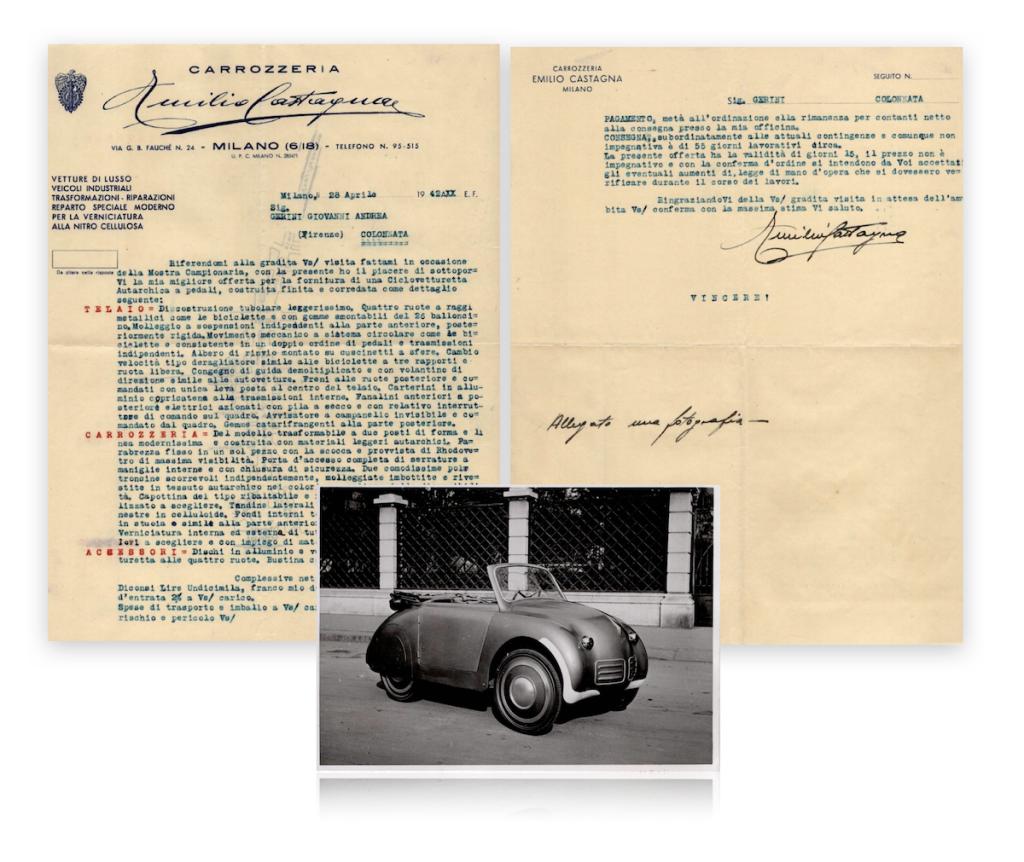 CARROZZERIA
Emilio Castagna
VIA G. B. FAUCHÉ N. 24 - MILANO (6/18) - TELEFONO N. 95-515
U. P. C. MILANO N.
VETTURE DI LUSSO
VEICOLI INDUSTRIALI
TRASFORMAZIONI - RIPARAZIONI
REPARTO SPECIALE MODERNO
PER LA VERNICIATURA
ALLA NITRO CELLULOSA
Milano, 28 Aprile 1942XX E. F.
Sig.
GERINI GIOVANNI ANDREA
(Firenze) COLONNATA
Da citare nella risposta
Riferendomi alla gradita Vs/ visita fattami in occasione
della Mostra Campionaria, con la presente ho il piacere di sottopor=
Vi la mia migliore offerta per la fornitura di una Ciclovetturetta
Autarchica a pedali, costruita finita e corredata come dettaglio
seguente:
TELAIO= Di costruzione tubolare leggerissimo. Quattro ruote a raggi
metallici come le biciclette e con gomme smontabili del 26 balonci=
no. Molleggio a sospensioni indipendenti alla parte anteriore, poste=
riormente rigida. Movimento meccanico a sistema circolare come le bi=
ciclette e consistente in un doppio ordine di pedali e trasmissioni
indipendenti. Albero di rinvio montato su cuscinetti a sfere. Cambio
velocità tipo deragliatore simile alle biciclette a tre rapporti e
ruota libera. Congegno di guida demoltiplicato e con volantino di
direzione simile alle autovetture. Freni alle ruote posteriore e co=
mandati con unica leva posta al centro del telaio. Carterini in allu=
minio copricatena alla trasmissioni interne. Fanalini anteriori a po=
steriore elettrici azionati con pila a secco e con relativo interrut=
tore di comando sul quadro. Avvisatore a campanello invisibile e co=
mandato dal quadro. Gemme catarifrangenti alla parte posteriore.
CARROZZERIA= Del modello trasformabile a due posti di forma e li
nea modernissima e costruita con materiali leggeri autarchici. Pa=
rabrezza fisso in un sol pezzo con la scocca e provvista di Rhodove=
tro di massima visibilità. Porta d'accesso completa di serrature a
maniglie interne e con chiusura di sicurezza. Due comodissime pol=
troncine scorrevoli indipendentemente, molleggiate imbottite e rive=
stite in tessuto autarchico nei color
tà. Capottina del tipo ribaltabile e
lizzato a scegliere. Tendine laterali
nestre in celluloide. Fondi interni
in stuoia e simile alla parte anterio
Verniciatura interna ed esterna di tu
a scegliere e con impiego di mat
ACCESSORI= Dischi in alluminio e v
turetta alle quattro ruote. Bustina c
Complessive net
Diconsi Lire Undicimila, franco mio
d'entrata 2% a Vs/ carico.
Spese di trasporto e imballo a Vs/ ca
rischio e pericolo Vs/
CARROZZERIA
EMILIO CASTAGNA
MILANO
SEGUITO N.
Sig. GERINI COLONNATA
PAGAMENTO, metà all'ordinazione ella rimanenza per contanti netto
alla consegna presso la mia officina.
CONSEGNA, subordinatamente alle attuali contingenze e comunque non
impegnativa è di 55 giorni lavorativi circa.
La presente offerta ha la validità di giorni 15, il prezzo non è
impegnativo e con la conferma d'ordine si intendono da Voi accettati
gli eventuali aumenti di legge di mano d'opera che si dovessero ve=
rificare durante il corso dei lavori.
Ringraziandovi della Vs/ gradita visita in attesa dell'am
bita Vs/ conferma con la massima stima Vi saluto.
Emilio Castagna
VINCERE!
Allegato una fotografia